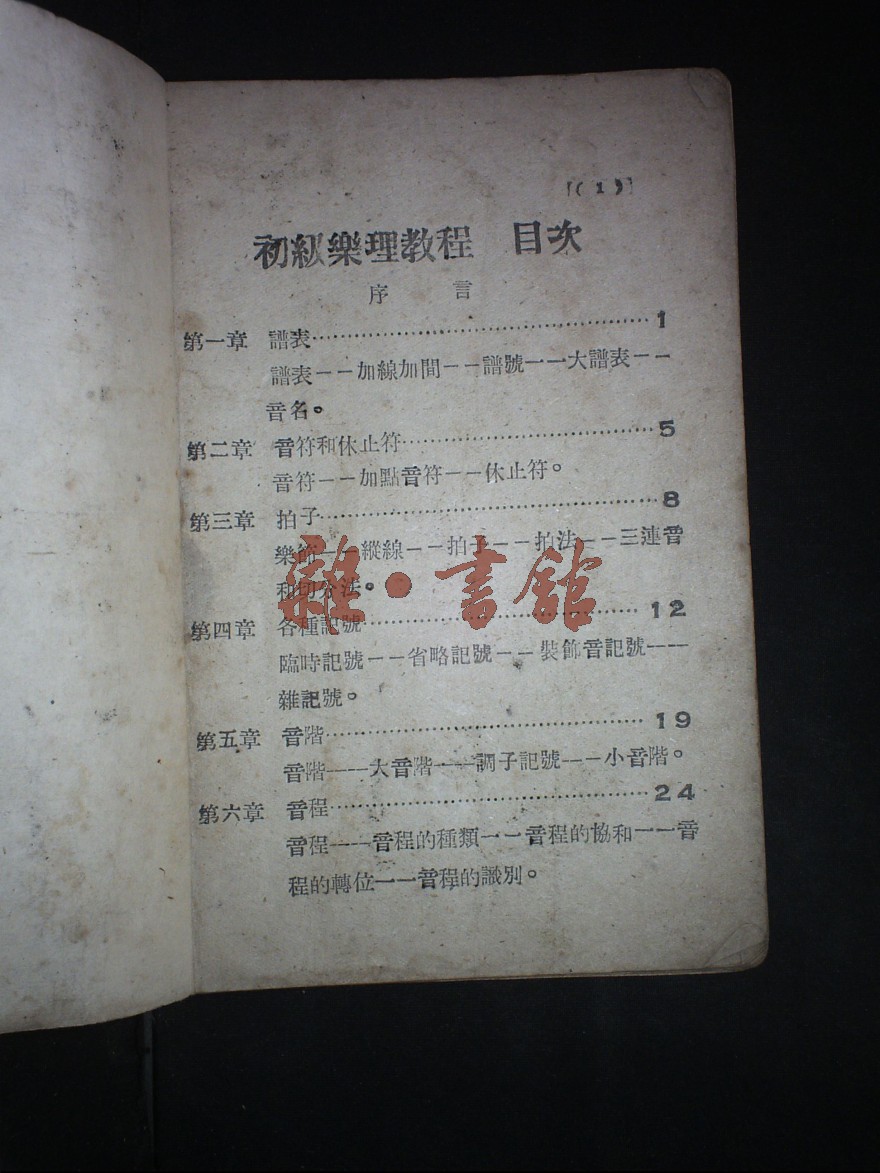 (1)
初級樂理教程 目次
序 言
第一章 譜表……………………………………1
譜表——加線加間——譜號——大譜表——
音名。
第二章 音符和休止符……………………………5
音符——加點音符——休止符。
第三章 拍子……………………………………8
樂節——縱線——拍子——拍法——三連音
和切分法。
第四章 各種記號………………………………12
臨時記號——省略記號——裝飾音記號——
雜記號。
第五章 音階……………………………………19
音階——大音階——調子記號——小音階。
第六章 音程……………………………………24
音程——音程的種類——音程的協和——音
程的轉位——音程的識別。
雜·書館